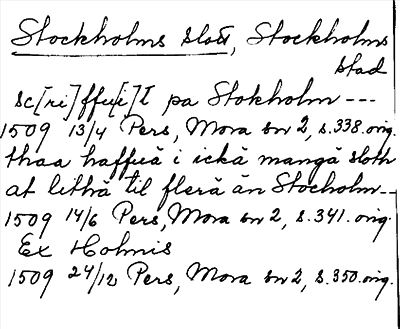 Stockholms slott, Stockholms
stad
sc[ri]ffu[i]t pa Stokholm ---
1509 13/4 Pers, Mora sn 2, s.338.orig.
thaa haffuä i ickä mangä sloth
at lithä til flerä än Stocholm--
1509 14/6 Pers, Mora sn 2, s.341.orig.
Ex Holmis
1509 24/12 Pers, Mora sn 2, s.350.orig.